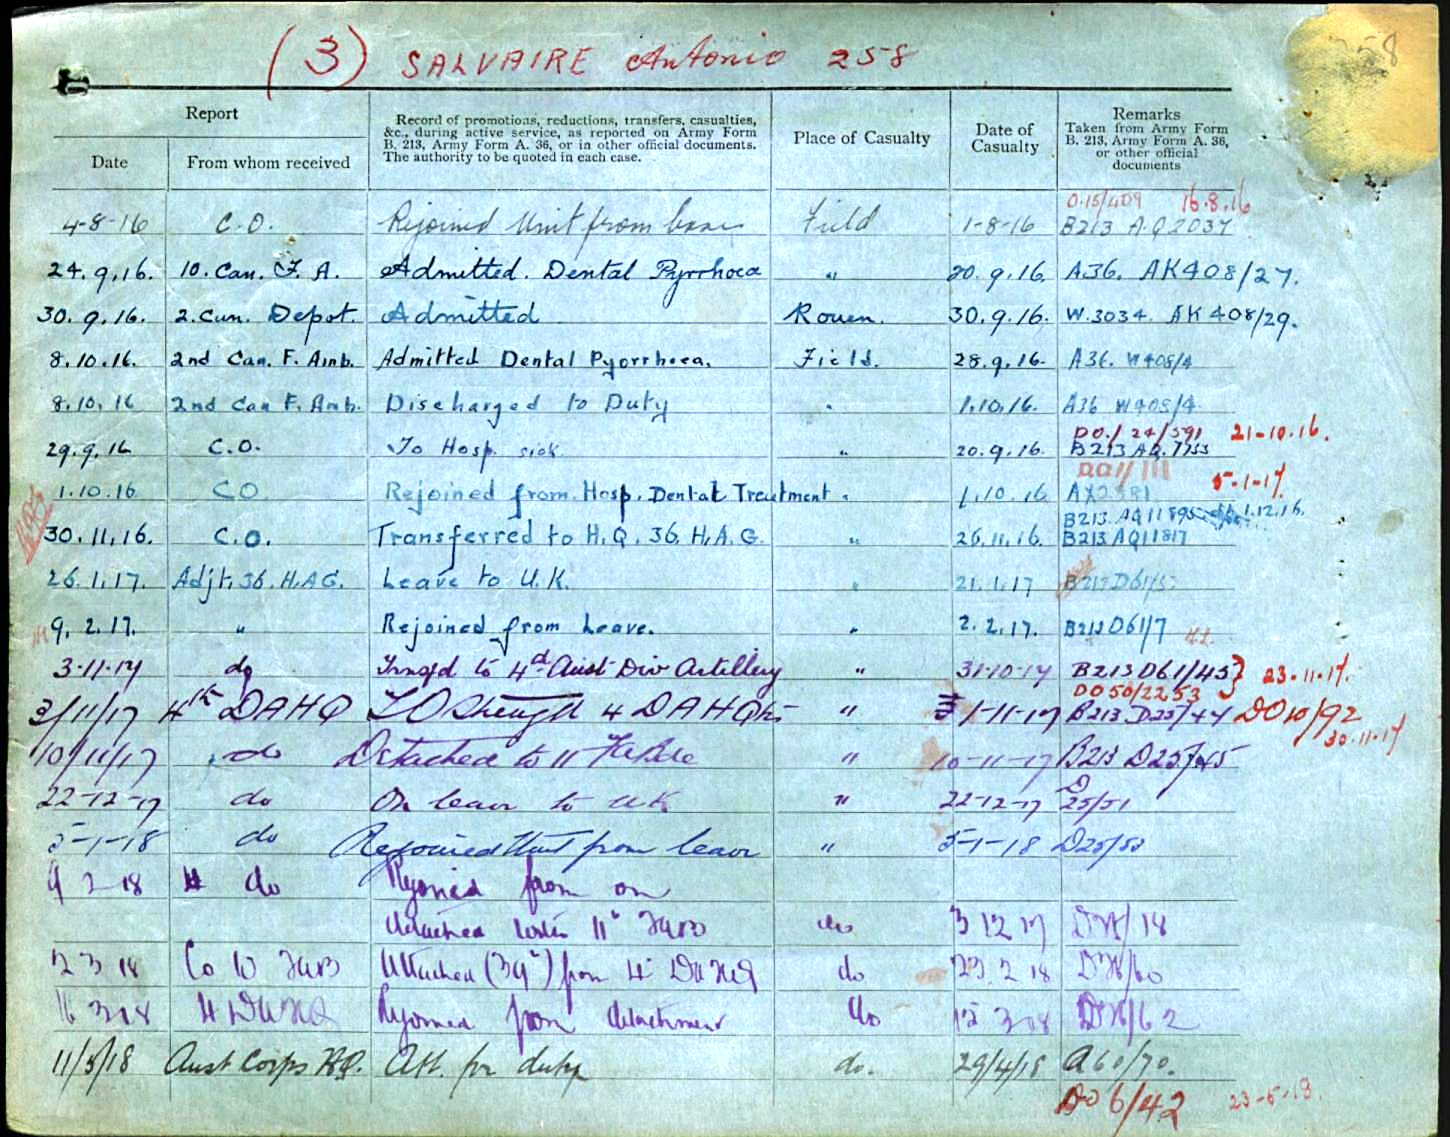 (3) SALVAIRE Antonio 258
Report
Record of promotions, reductions, transfers, casualties,
&c., during active service, as reported on Army Form
B. 213, Army Form A. 36, or in other official documents.
The authority to be quoted in each case.
Place of Casualty
Date of
Casualty
Remarks
Taken from Army Form
B. 213, Army Form A. 36,
or other official
documents
Date
From whom received
0.15/409 16.8.16
4-8-16 C.O. Rejoined Unit from base Field 1-8-16 B213 A.Q 2037
24.9.16. 10. Can. F. A. Admitted. Dental Pyrrhoea " 20.9.16. A36. AK408/27.
30.9.16. 2. Cun. Depot. Admitted Rouen. 30.9.16. W.3034. AK408/29.
8.10.16. 2nd Can. F. Amb. Admitted Dental Pyorrhoea. Field. 28.9.16. A36. W408/4
8.10.16 2nd Can F. Amb. Discharged to Duty " 1.10.16. A36 W408/4
DO./24/591 21-10.16.
29.9.16 C.O. To Hosp. sick " 20.9.16. B213 AQ.7753
5-1-17
1.10.16 C.O. Rejoined from Hosp. Dental Treatment " 1.10.16 AX2381
B213.AQ11895 1.12.16.
30.11.16. C.O. Transferred to H.Q. 36. H.A.G. " 26.11.16. B213 AQ11817
26.1.17. Adjt. 36. H.A.G. Leave to U.K. " 21.1.17 B213 D61/5
9.2.17. " Rejoined from Leave. " 2.2.17. B213 D61/7
3-11-17 do Transfd to 4th Aust Div Artillery " 31-10-17 B213 D61/45 } 23-11-17.
DO50/2253
3/11/17 4th DAHQ T O Strength 4 DAHQrs " 1-11-17 B213 D25/44 DO10/92
30-11-17
10/11/17 do Detached to 11 FaBde " 10-11-17 B213 D25/45
22-12-17 do On leave to UK " 22-12-17 D 25/51
5-1-18 do Rejoined Unit from leave " 5-1-18 D25/53
9 2 18 do Rejoined from on
detached with 11th FAB do 3 12 17 D25/18
12 3 18 Co 10 FAB Attached (39th) from 4th DAHQ do 23 2 18 D28/60
16 3 18 4 DAHQ Rejoined from detachment do 12 3 18 D28/62
11/5/18 Aust Corps HQ. Att. for duty do. 29/4/18 A60/70.
DO 6/42 23-5-18.